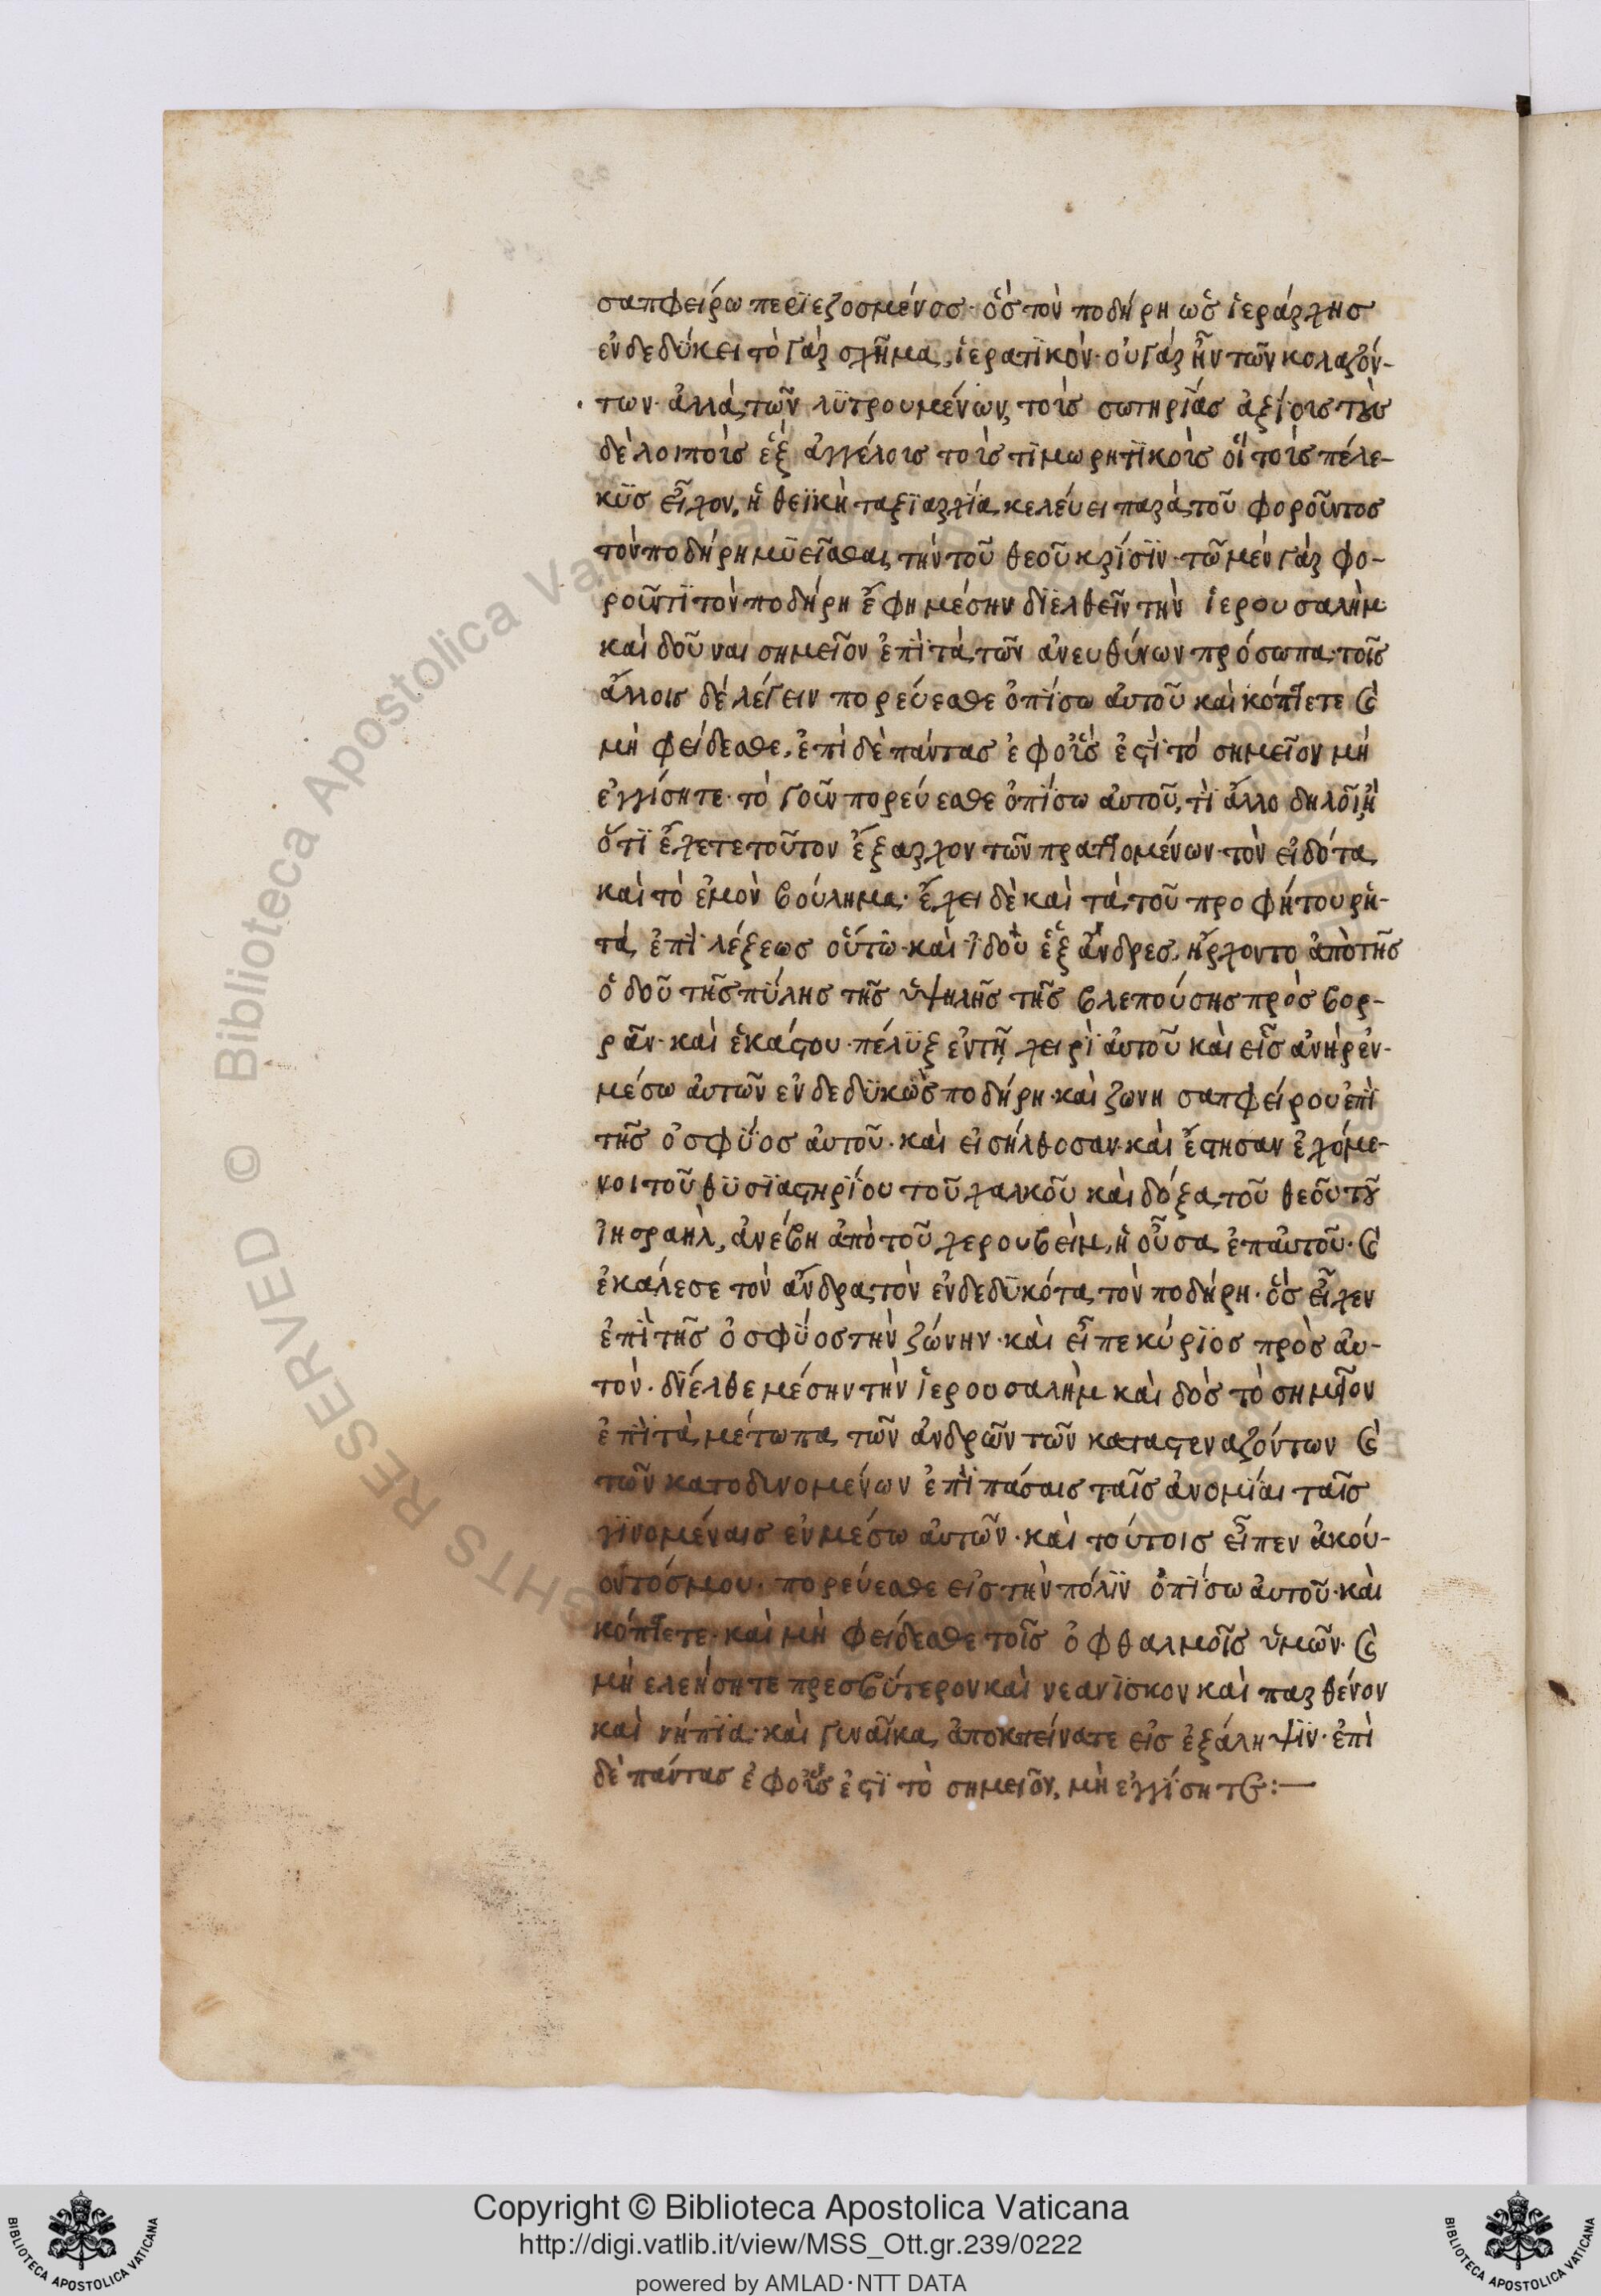 σαπφείρω περϊεζοσμένος· ὅς τὸν ποδήρη ὡς ἱεράρχης
ἐνδεδϋκει τὸ γὰρ σχῆμα, ἱερατϊκόν· οὐ γὰρ ἦν τῶν κολαζόν-
των· ἀλλὰ τῶν λϋτρουμένων, τοῖς σωτηρϊας ἀξίοις τοὺς
δὲ λοιποῖς ἓξ ἀγγέλοις τοῖς τϊμωρητϊκοῖς οἵ τοῖς πέλε-
κϋς εἶχον, ἡ θεϊκὴ ταξϊαρχία κελεύει παρὰ τοῦ φοροῦντος
τὸν ποδήρη μϋεῖσθαι, τὴν τοῦ θεοῦ κρίσϊν· τῶ μὲν γὰρ φο-
ροῦντϊ τὸν ποδήρη ἔφη μέσην δϊελθεῖν τὴν ἱερουσαλὴμ
καὶ δοῦναι σημεῖον ἐπϊ τὰ τῶν ἀνευθύνων πρόσωπα· τοῖς
ἄλλοις δὲ λέγειν πορεύεσθε ὀπϊσω αὐτοῦ καὶ κόπτετε καὶ
μὴ φείδεσθε, ἐπὶ δὲ πάντας ἐφ οἷς ἐστϊ τὸ σημεῖον μὴ
ἐγγίσητε· τὸ γοῦν πορεύεσθε ὀπϊσω αὐτοῦ, τϊ ἄλλο δηλοῖ, ἢ
ὅτϊ ἔχετε τοῦτον ἔξαρχον τῶν πραττομένων· τὸν εἰδότα
καὶ τὸ ἐμὸν βούλημα· ἔχει δὲ καὶ τὰ τοῦ προφήτου ῥη-
τά, ἐπϊ λέξεως οὕτω· καὶ ἰδοὺ ἓξ ἄνδρες, ἤρχοντο ἀπὸ τῆς
ὁδοῦ τῆς πϋλης τῆς ὑψηλῆς τῆς βλεπούσης πρὸς βορ-
ρᾶν· καὶ ἑκάστου πέλϋξ ἐν τῆ, χειρϊ αὐτοῦ καὶ εἷς ἀνὴρ ἐν-
μέσω αὐτῶν ἐνδεδϋκὼς ποδήρη· καὶ ζωνη σαπφείρου ἐπϊ
τῆς ὀσφϋος αὐτοῦ· καὶ εἰσήλθοσαν· καὶ ἔστησαν ἐχόμε-
νοι τοῦ θϋσϊαστηρϊου τοῦ χαλκοῦ καὶ δόξα τοῦ θεοῦ τοῦ
ἰησραήλ, ἀνέβη ἀπὸ τοῦ χερουβεὶμ, ἡ οὖσα ἐπ αὐτοῦ· καὶ
ἐκάλεσε τὸν ἄνδρα τὸν ἐνδεδϋκότα τὸν ποδήρη· ὃς εἶχεν
ἐπϊ τῆς ὀσφϋος τὴν ζώνην· καὶ εἶπε κύρϊος πρὸς αὐ-
τόν· δϊέλθε μέσην τὴν ἱερουσαλὴμ καὶ δὸς τὸ σημεῖον
ἐπϊ τὰ μέτωπα τῶν ἀνδρῶν τῶν καταστεναζόντων καὶ
τῶν κατοδινομένων ἐπϊ πάσαις ταῖς ἀνομϊαι ταῖς
γϊνομέναις ἐν μέσω αὐτῶν· καὶ τούτοις εἶπεν ἀκού-
οντός μου, πορεύεσθε εἰς τὴν πόλϊν ὀπϊσω αὐτοῦ· καὶ
κόπτετε· καὶ μὴ φείδεσθε τοῖς ὀφθαλμοῖς ὑμῶν· καὶ
μὴ ελεήσητε πρεσβύτερον καὶ νεανϊσκον καὶ παρθένον
καὶ νήπϊα· καὶ γυναῖκα, ἀποκτείνατε εἰς ἐξάληψϊν· ἐπὶ
δὲ πάντας ἐφ οἷς ἐστϊ τὸ σημεῖον, μὴ ἐγγίσητε:—
Copyright © Biblioteca Apostolica Vaticana
http://digi.vatlib.it/view/MSS_Ott.gr.239/0222
powered by AMLAD·NTT DATA